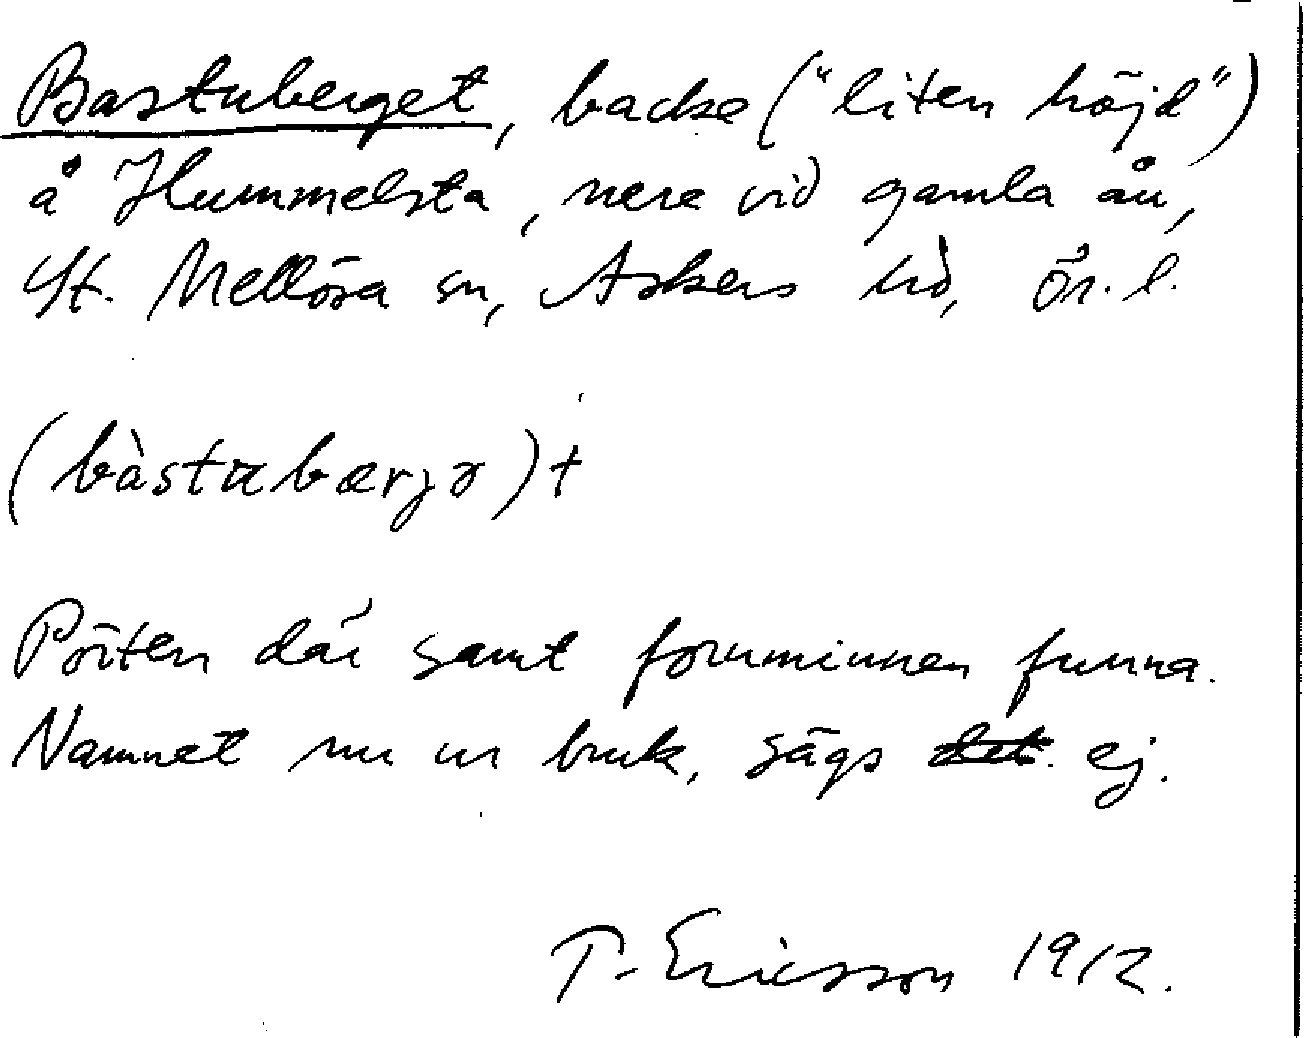 Bastuberget, backe ("liten höjd")
å Hummelsta, nere vid gamla ån,
St. Mellösa sn, Askers hd, Ör. l.
(bàstubærjə)+
Pörten där samt fornminnen funna.
Namnet nu ur bruk, sägs det ej.
T. Ericsson 1912.